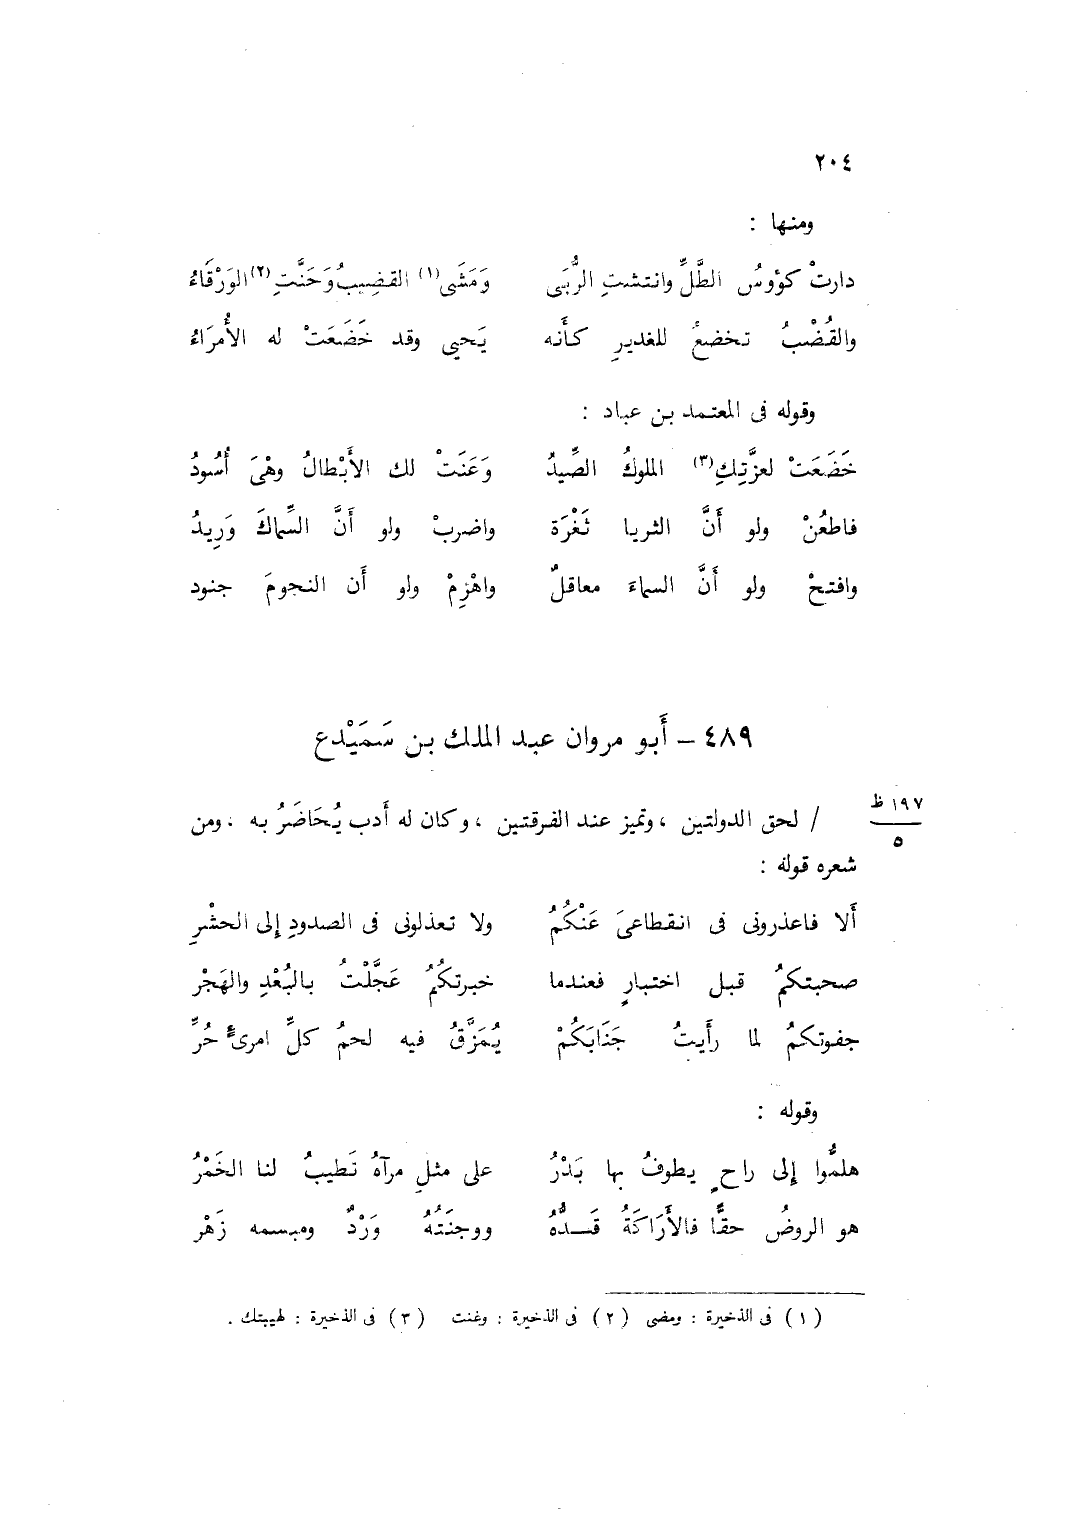 ٢٠٤
ومنها :
دارتْ كؤوسُ الطَّلِّ وانتشتِ الرُّبَى وَمَشَى(١) القضِيبُ وَحَنَّتِ(٢) الوَرْقَاءُ
والقُضْبُ تخضعُ للغديرِ كأَنه يَحيى وقد خَضَعَتْ له الأُمرَاءُ
وقوله فى المعتمد بن عباد :
خَضَعَتْ لعزَّتِكِ(٣) الملوكُ الصِّيدُ وَعَنَتْ لك الأَبْطالُ وهْىَ أُسُودُ
فاطعُنْ ولو أَنَّ الثريا ثَغْرَة واضربْ ولو أَنَّ السِّماكَ وَرِيدُ
وافتحْ ولو أَنَّ السماءَ معاقلٌ واهْزِمْ ولو أَن النجومَ جنود
٤٨٩ – أَبو مروان عبد الملك بن سَمَيْدع
/ لحق الدولتين ، وتميز عند الفرقتين ، وكان له أدب يُحَاضَرُ به . ومن
١٩٧ ظ
٥
شعره قوله :
أَلا فاعذرونى فى انقطاعىَ عَنْكُمُ ولا تعذلونى فى الصدودِ إلى الحشْرِ
صحبتكمُ قبل اختبارٍ فعندما خبرتكُمُ عَجَّلْتُ بالبُعْدِ والهَجْر
جفوتكمُ لما رأَيتُ جَنَابَكُمْ يُمَزَّقُ فيه لحمُ كلِّ امرئٍ حُرِّ
وقوله :
هلمُّوا إلى راحٍ يطوفُ بها بَدْرُ على مثلِ مرآهُ تَطيبُ لنا الخَمْرُ
هو الروضُ حقًّا فالأَرَاكَةُ قَدُّهُ ووجنَتُهُ وَرْدٌ ومبسمه زَهْر
(١) فى الذخيرة : ومضى (٢) فى الذخيرة : وغنت (٣) فى الذخيرة : لهيبتك .